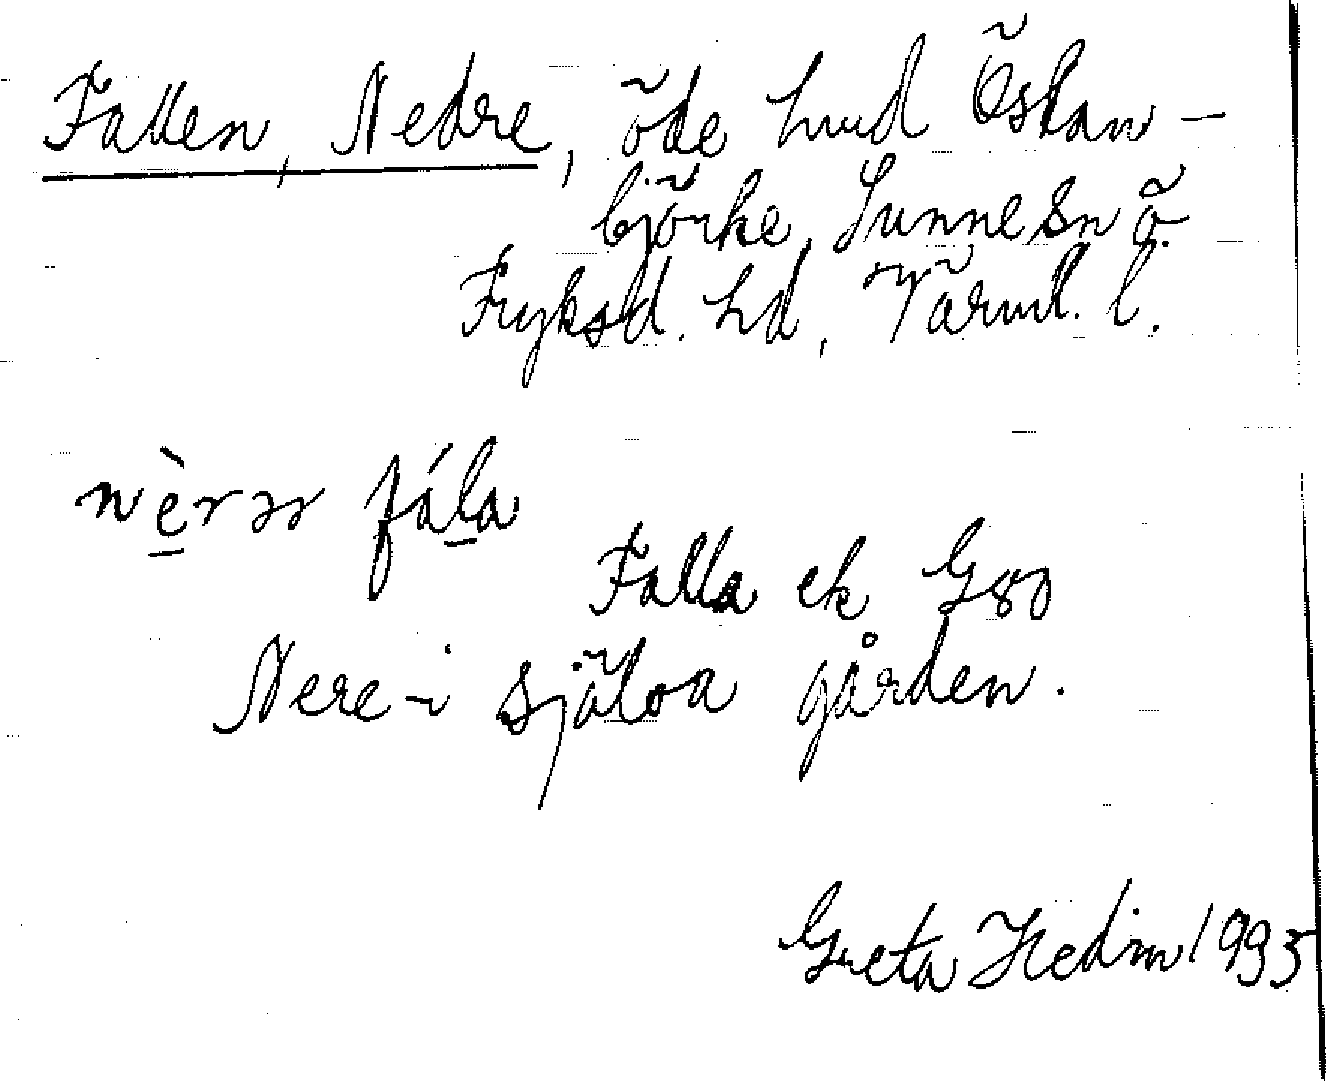 Fallen, Nedre, öde hmd Östan-
björke, Sunne sn ö.
Fryksd. hd, Värml. l.
nèrər fála
Falla ek G80
Nere-i själva gården.
Greta Hedin 1935